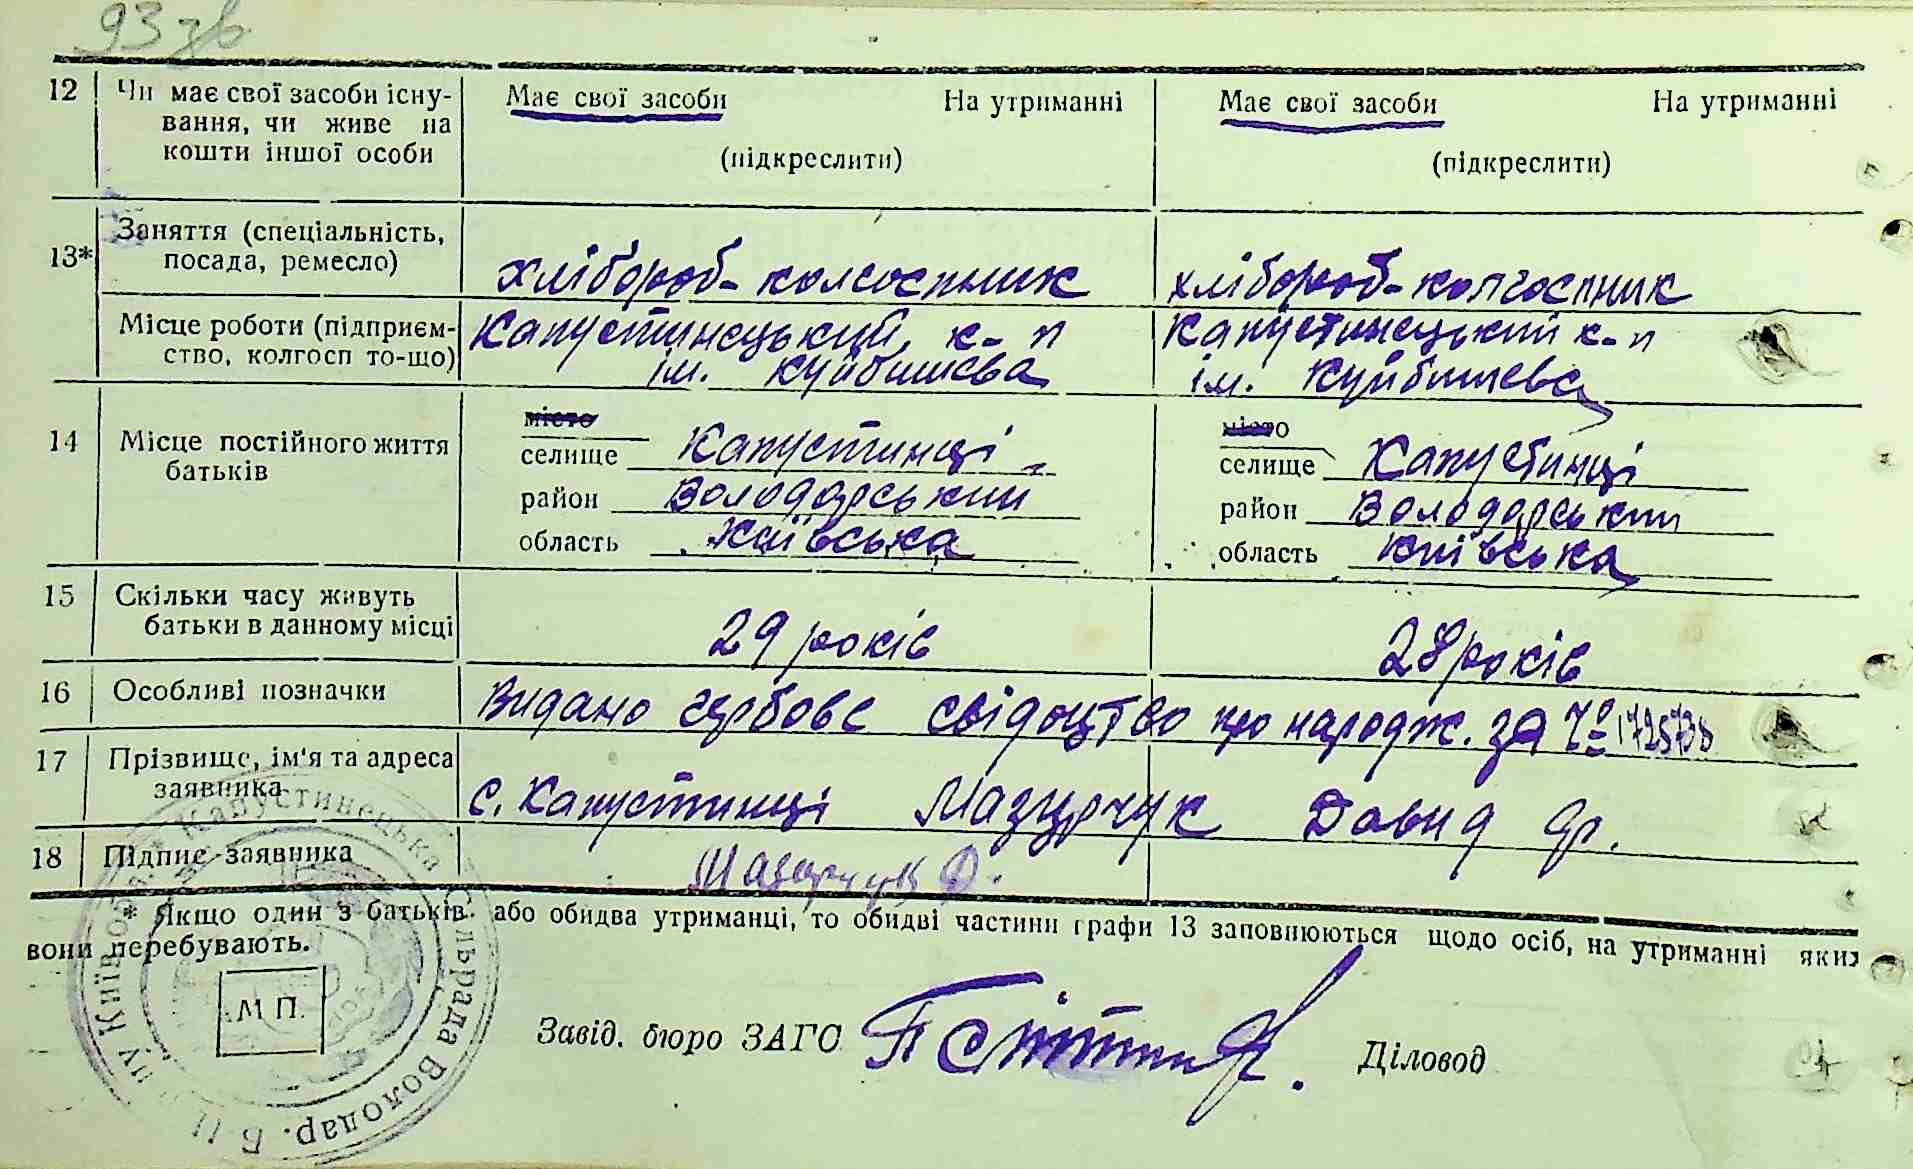 93 зв
12 Чи має свої засоби існу- Має свої засоби На утриманні Має свої засоби На утриманні
вання, чи живе на
кошти іншої особи (підкреслити) (підкреслити)
13* Заняття (спеціальність,
посада, ремесло) хлібороб-колгоспник хлібороб-колгоспник
Місце роботи (підприєм- Капустинецький к-п Капустинецький к-п
ство, колгосп то-що) ім. Куйбишева ім. Куйбишева
місто місто
14 Місце постійного життя селище Капустинці селище Капустинці
батьків район Володарський район Володарський
область Київська область Київська
15 Скільки часу живуть
батьки в данному місці 29 років 28 років
16 Особливі позначки Видано гербове свідоцтво про народж. за №
17 Прізвище, ім'я та адреса
заявника с. Капустинці Мазурчук Давид
18 Підпис заявника Мазурчук Д.
* Якщо один з батьків або обидва утриманці, то обидві частини графи 13 заповнюються щодо осіб, на утриманні яких
вони перебувають.
М П.
Завід. бюро ЗАГС Діловод
Капустинецька Сільрада Володар.
Київ